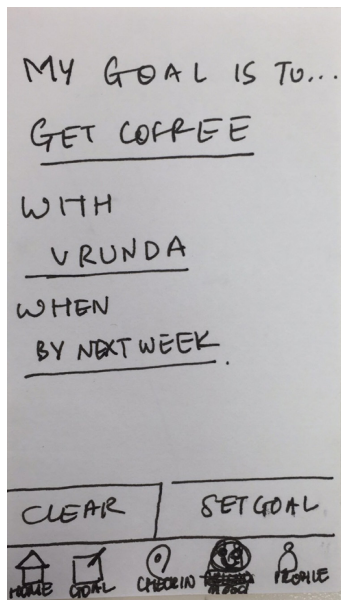 MY GOAL IS TO...
GET COFFEE
WITH
VRUNDA
WHEN
BY NEXT WEEK.
CLEAR SET GOAL
HOME GOAL CHECKIN PROFILE